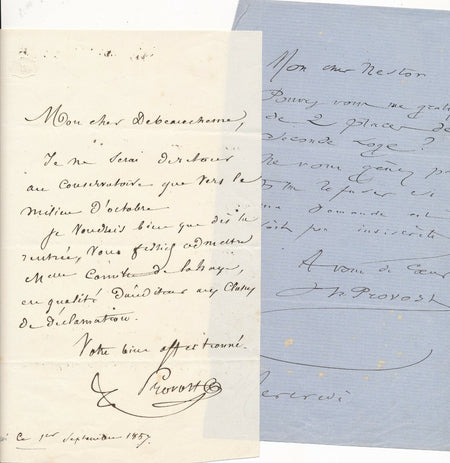 Mon cher Debeauchesne,
Je ne serai de retour
au Conservatoire que vers le
milieu d'octobre
je voudrais bien que dès la
rentrée, vous fissiez admettre
Melle Camille de Lahaye,
en qualité d'auditeur aux classes
de déclamation.
Votre bien affectionné.
Provost
ce 1er Septembre 1857
Mon cher Nestor
Pouvez vous me
de 2 places de
seconde loge?
Ne vous gênez
me refuser
ma demande est
soit par indiscrète
A vous de cœur
Provost
Mercredi